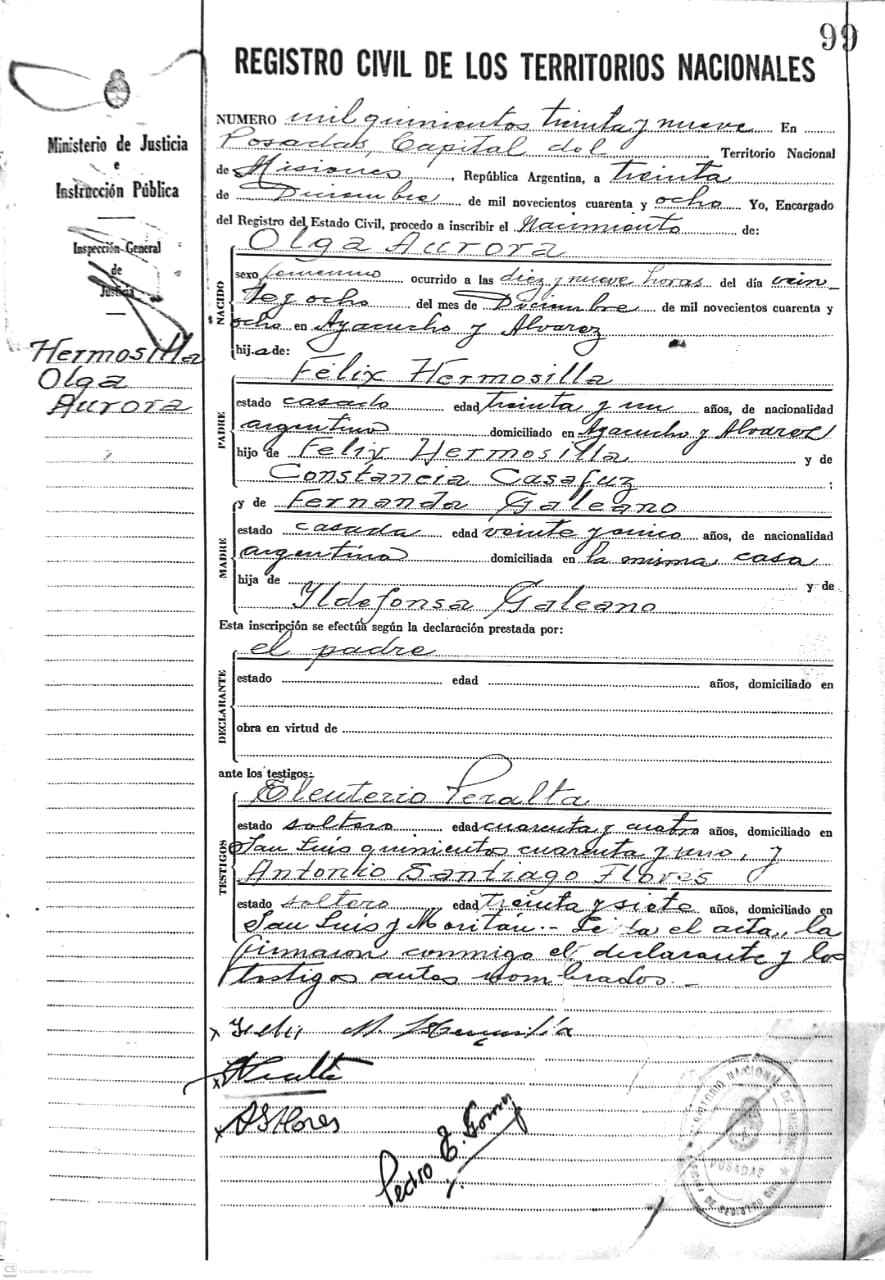 99
REGISTRO CIVIL DE LOS TERRITORIOS NACIONALES
Ministerio de Justicia
e
Instrucción Pública
Inspección General
de
Justicia
Hermosilla
Olga
Aurora
NUMERO mil quinientos treinta y nueve En
Posadas, Capital del Territorio Nacional
de Misiones, República Argentina, a treinta
de Diciembre de mil novecientos cuarenta y ocho Yo, Encargado
del Registro del Estado Civil, procedo a inscribir el Nacimiento de:
NACIDO
Olga Aurora
sexo femenino ocurrido a las diez y nueve horas del día vein
te y ocho del mes de Diciembre de mil novecientos cuarenta y
ocho en Ayacucho y Alvarez
hija de:
PADRE
Félix Hermosilla
estado casado edad treinta y un años, de nacionalidad
argentino domiciliado en Ayacucho y Alvarez
hijo de Felix Hermosilla y de
Constancia Casafuz ;
MADRE
y de Fernanda Galeano
estado casada edad veinte y cinco años, de nacionalidad
argentina domiciliada en la misma casa
hija de y de
Ildefonsa Galeano
Esta inscripción se efectúa según la declaración prestada por:
DECLARANTE
el padre
estado edad años, domiciliado en
obra en virtud de
ante los testigos:
TESTIGOS
Eleuterio Peralta
estado soltero edad cuarenta y cuatro años, domiciliado en
San Luis quinientos cuarenta y uno, y
Antonio Santiago Flores
estado soltero edad treinta y siete años, domiciliado en
San Luis y Moritán.- Leída el acta, la
firmaron conmigo el declarante y los
testigos antes nombrados.-
x Felix M. Hermosilla
x Peralta
x A S Flores
Pedro E. Gomez
TERRITORIO NACIONAL DE MISIONES
POSADAS
CS